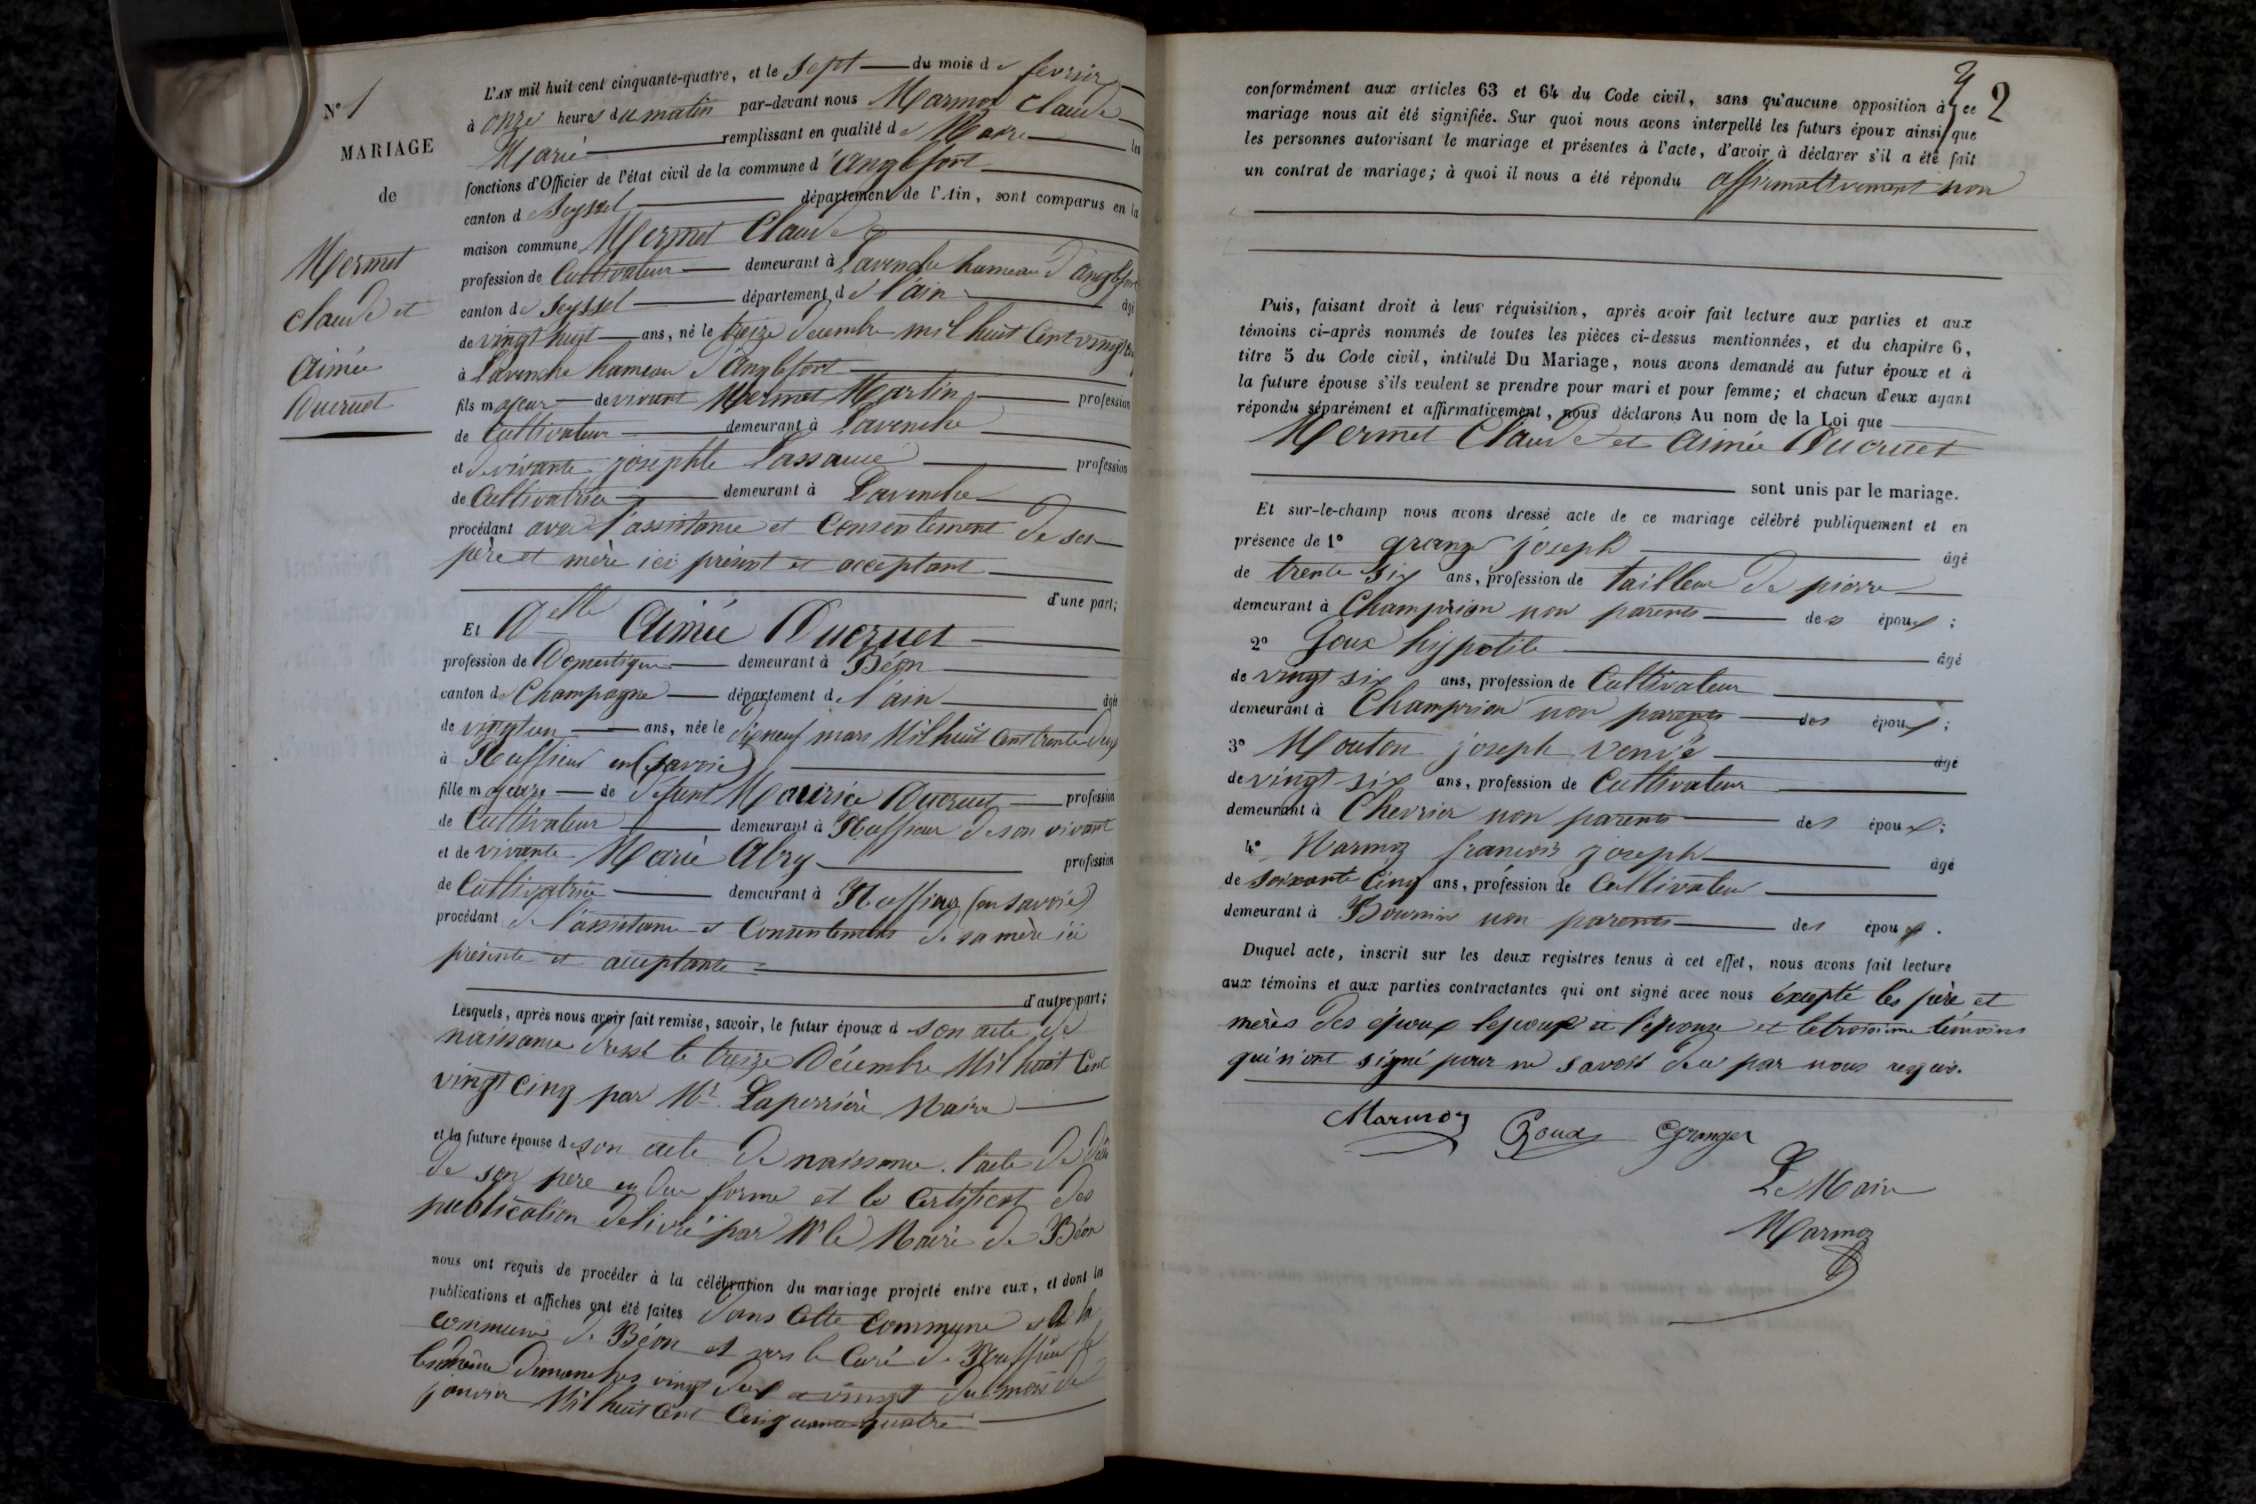 N° 1
MARIAGE
de
Mermet
Claude et
Aimée
Ducruet
L'AN mil huit cent cinquante-quatre, et le sept du mois de fevrier
à onze heures du matin par-devant nous Marmoz Claude
Marie remplissant en qualité de Maire les
fonctions d'Officier de l'état civil de la commune d'Anglefort
canton de Seyssel département de l'Ain, sont comparus en la
maison commune Mermet Claude
profession de Cultivateur demeurant à Lavenche hameau d'anglefort
canton de Seyssel département de l'ain âgé
de vingt huit ans, né le treize decembre mil huit Cent vingt
à Lavenche hameau d'Anglefort
fils majeur de vivant Mermet Martin profession
de Cultivateur demeurant à Lavenche
et de vivante josephte Lassauce profession
de Cultivatrice demeurant à Lavenche
procédant avec l'assistance et Consentement de ses
père et mère ici présent et acceptant
d'une part;
Et Delle Aimée Ducruet
profession de Domestique demeurant à Béon
canton de Champagne département de l'ain âgée
de vingt un ans, née le dix neuf mars Mil huit Cent trente deux
à Ruffieux en (savoie)
fille majeure de defunt Maurice Ducruet profession
de Cultivateur demeurant à Ruffieux de son vivant
et de vivante Marie Abry profession
de Cultivatrice demeurant à Ruffieux (en savoie)
procédant de l'assistance et Consentement de sa mère ici
présente et acceptante
d'autre part;
Lesquels, après nous avoir fait remise, savoir, le futur époux d son acte de
naissance dressé le treize Décembre Mil huit Cent
vingt cinq par Mr. Laperrière Maire
et la future épouse de son acte de naissance. l'acte de décès
de son père en due forme et le Certificat des
publication delivré par Mr le Maire de Béon
nous ont requis de procéder à la célébration du mariage projeté entre eux, et dont les
publications et affiches ont été faites dans Cette Commune et à la
commune de Béon et par le Curé de Ruffieux
dimanches vingt deux et vingt du mois de
janvier Mil huit Cent Cinquante quatre
2
conformément aux articles 63 et 64 du Code civil, sans qu'aucune opposition à ce
mariage nous ait été signifiée. Sur quoi nous avons interpellé les futurs époux ainsi que
les personnes autorisant le mariage et présentes à l'acte, d'avoir à déclarer s'il a été fait
un contrat de mariage; à quoi il nous a été répondu affirmativement non
Puis, faisant droit à leur réquisition, après avoir fait lecture aux parties et aux
témoins ci-après nommés de toutes les pièces ci-dessus mentionnées, et du chapitre 6,
titre 5 du Code civil, intitulé Du Mariage, nous avons demandé au futur époux et à
la future épouse s'ils veulent se prendre pour mari et pour femme; et chacun d'eux ayant
répondu séparément et affirmativement, nous déclarons Au nom de la Loi que
Mermet Claude et Aimée Ducruet
sont unis par le mariage.
Et sur-le-champ nous avons dressé acte de ce mariage célébré publiquement et en
présence de 1° grange joseph âgé
de trente six ans, profession de tailleur de pierre
demeurant à Champrion non parents des époux;
2° Goux hypolite âgé
de vingt six ans, profession de Cultivateur
demeurant à Champrion non parents des époux;
3° Mouton joseph âgé
de vingt six ans, profession de Cultivateur
demeurant à Chevrier non parents des époux;
4° Marmoz françois joseph âgé
de soixante Cinq ans, profession de Cultivateur
demeurant à non parents des époux.
Duquel acte, inscrit sur les deux registres tenus à cet effet, nous avons fait lecture
aux témoins et aux parties contractantes qui ont signé avec nous excepté les père et
mères des époux l'epoux et l'épouse et le troisième témoins
qui n'ont signé pour ne savoir de ce par nous requis.
Marmoz Goux Granger
Le Maire
Marmoz